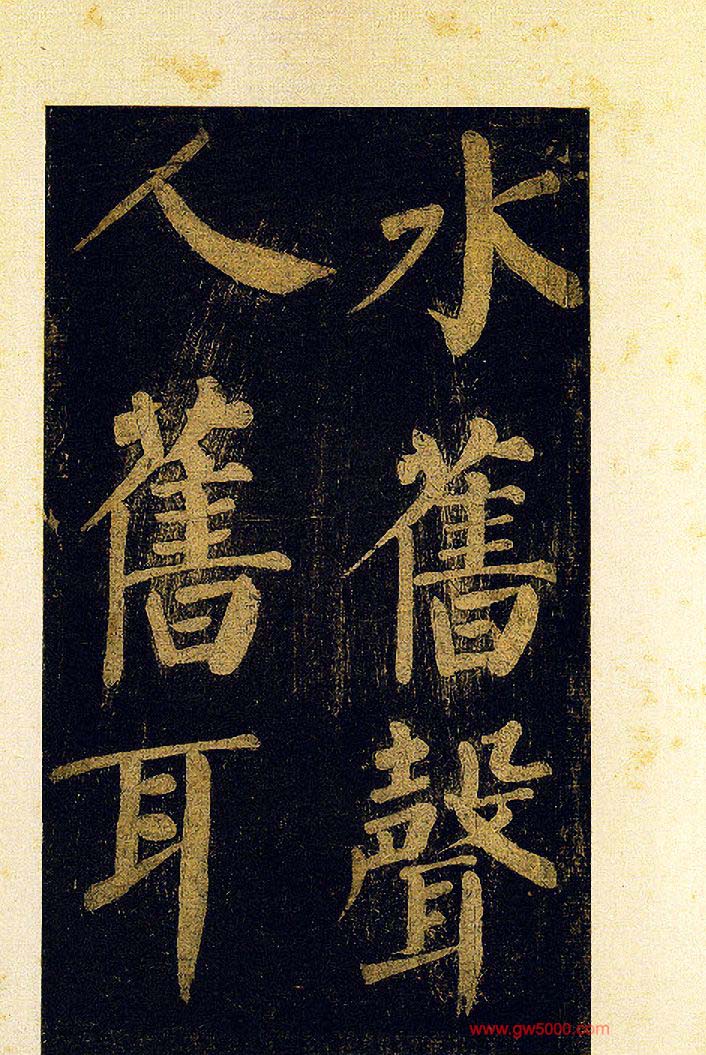 水舊聲
人舊耳
www.gw5000.com